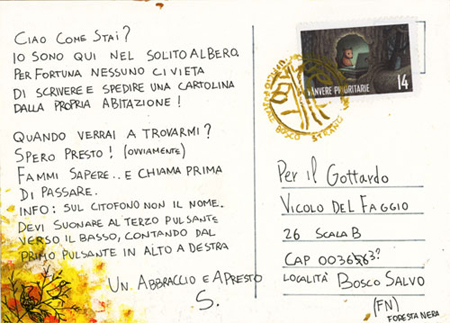 CIAO COME STAI?
IO SONO QUI NEL SOLITO ALBERO.
PER FORTUNA NESSUNO CI VIETA
DI SCRIVERE E SPEDIRE UNA CARTOLINA
DALLA PROPRIA ABITAZIONE!
QUANDO VERRAI A TROVARMI?
SPERO PRESTO! (OVVIAMENTE)
FAMMI SAPERE.. E CHIAMA PRIMA
DI PASSARE.
INFO: SUL CITOFONO NON IL NOME.
DEVI SUONARE AL TERZO PULSANTE
VERSO IL BASSO, CONTANDO DAL
PRIMO PULSANTE IN ALTO A DESTRA
UN ABBRACCIO E A PRESTO
S.
14
BOSCO
Per il Gottardo
VICOLO DEL FAGGIO
26 SCALA B
CAP
LOCALITÀ BOSCO SALVO
(FN)
FORESTA NERA